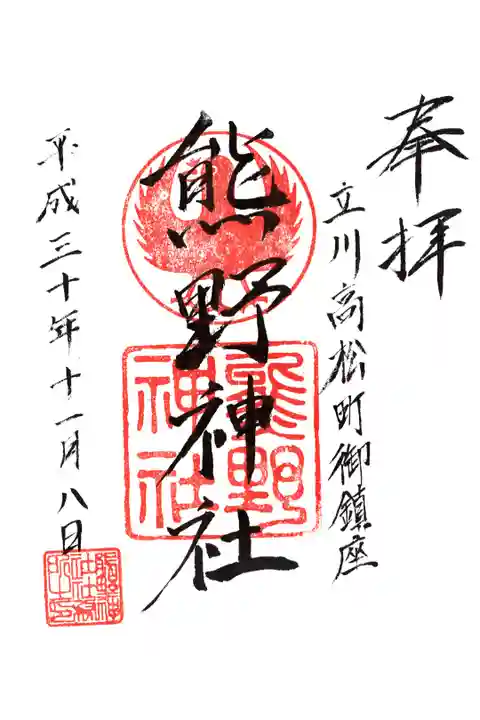 奉拝
立川高松町御鎮座
熊野神社
熊野
神社
平成三十年十一月八日